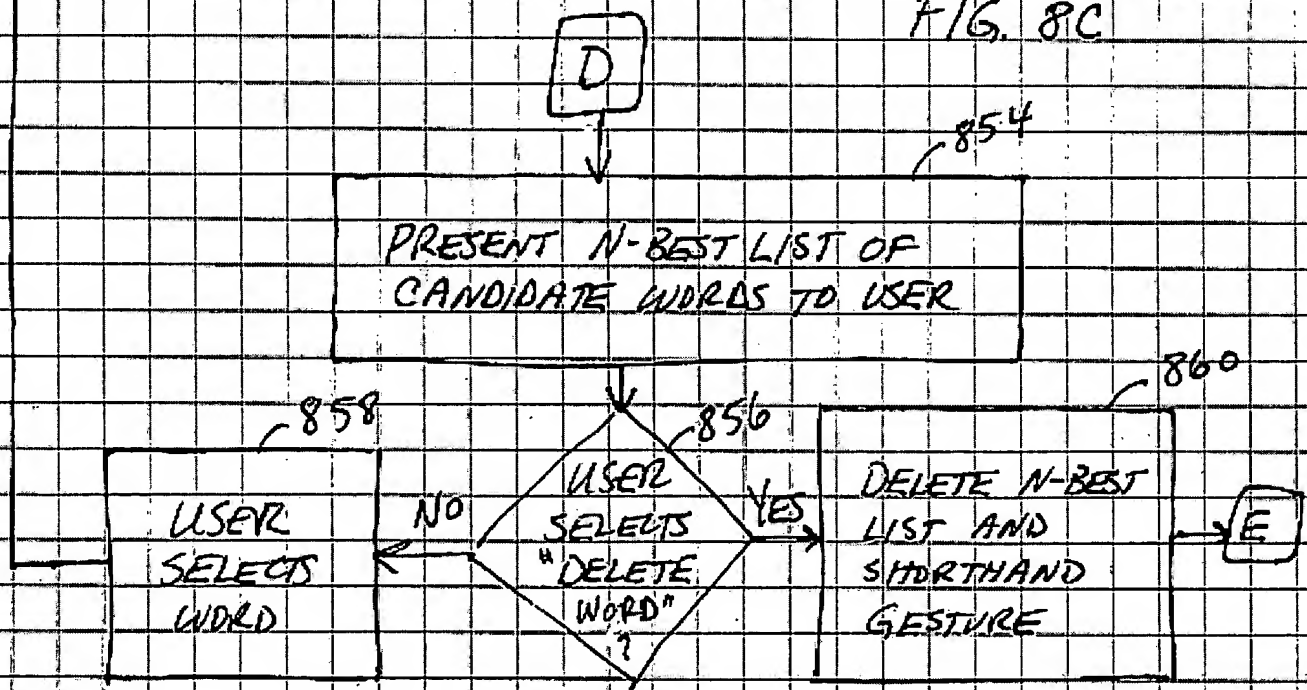 FIG. 8C
D
854
PRESENT N-BEST LIST OF
CANDIDATE WORDS TO USER
858
USER
SELECTS
WORD
NO
856
USER
SELECTS
"DELETE
WORD"
?
YES
860
DELETE N-BEST
LIST AND
SHORTHAND
GESTURE
E